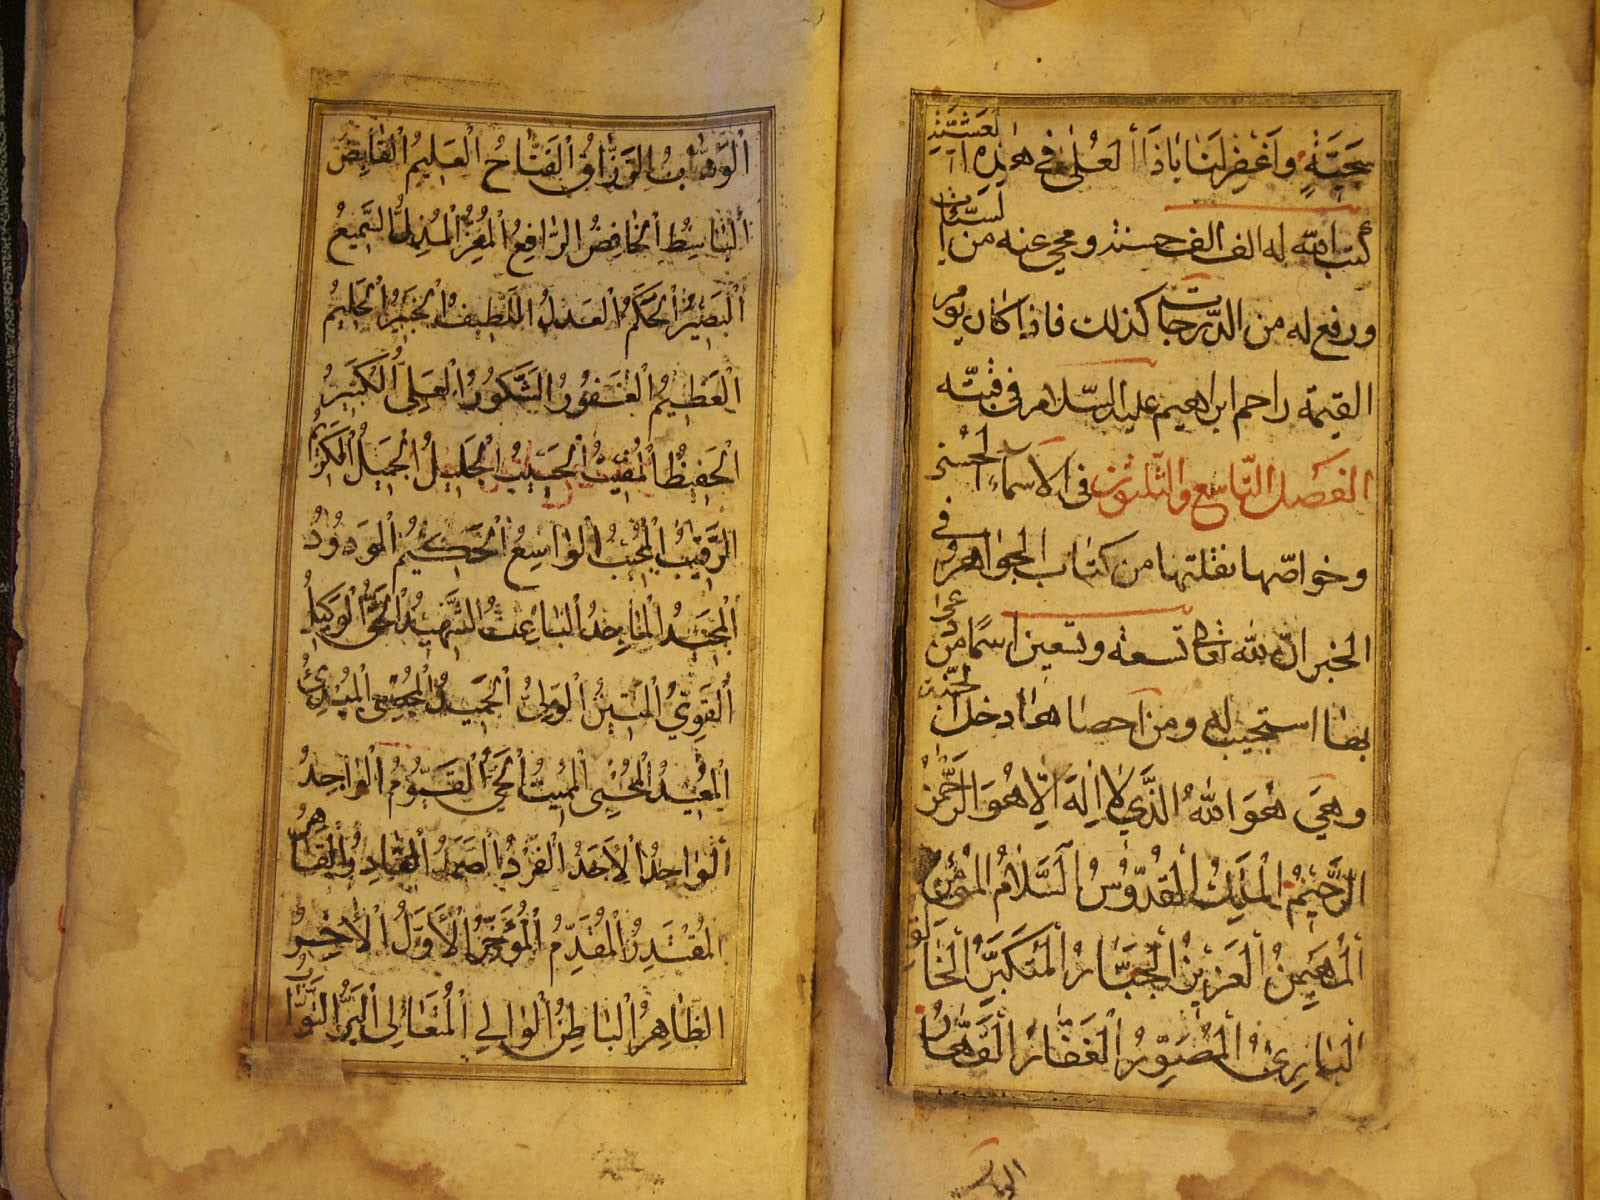 سَجِيَّةٍ وَاغْفِرْلَنَا يَاذَا الْعُلَى فِي هَذِهِ الْعَشِيَّةِ
كتب الله له الف الف حسنة ومحى عنه من السيّئات
ورفع له من الدّرجات كذلك فاذا كان يوم
القيمة زاحم ابراهيم عليه السّلام فى قبّته
الفصل التّاسع والثّلثون فى الاسمآء الحُسنى
وخواصّها نقلتها من كتاب الجواهر وفى
الخبر انّ لله تعالى تسعة وتسعين اسمًا من دعى
بها استجيب له ومن احصاها دخل الجنّة
وهِيَ هُوَ اللهُ الَّذِي لاَ إِلَهَ إِلاَّ هُوَ الرَّحْمَنُ
الرَّحِيْمُ الْمَلِكُ الْقُدُّوسُ السَّلاَمُ الْمُؤْمِنُ
الْمُهَيْمِنُ الْعَزِيزُ الْجَبَّارُ الْمُتَكَبِّرُ الْخَالِقُ
الْبَارِئُ الْمُصَوِّرُ الْغَفَّارُ الْقَهَّارُ
الوهاب
الْوَهَّابُ الرَّزَّاقُ الْفَتَّاحُ الْعَلِيمُ الْقَابِضُ
الْبَاسِطُ الْخَافِضُ الرَّافِعُ الْمُعِزُّ الْمُذِلُّ السَّمِيعُ
الْبَصِيْرُ الْحَكَمُ الْعَدْلُ اللَّطِيفُ الْخَبِيْرُ الْحَلِيمُ
الْعَظِيْمُ الْغَفُورُ الشَّكُورُ الْعَلِيُّ الْكَبِيْرُ
الْحَفِيْظُ الْمُقِيْتُ الْحَسِيْبُ الْجَلِيْلُ الْجَمِيْلُ الْكَرِيْمُ
الرَّقِيْبُ الْمُجِيْبُ الْوَاسِعُ الْحَكِيْمُ الْوَدُودُ
الْمَجِيْدُ الْمَاجِدُ الْبَاعِثُ الشَّهِيْدُ الْحَقُّ الْوَكِيْلُ
الْقَوِيُّ الْمَتِيْنُ الْوَلِيُّ الْحَمِيْدُ الْمُحْصِى الْمُبْدِئُ
الْمُعِيْدُ الْمُحْيِى الْمُمِيْتُ الْحَيُّ الْقَيُّوْمُ الْوَاجِدُ
الْوَاحِدُ الْأَحَدُ الْفَرْدُ الصَّمَدُ الْقَادِرُ الْقَاهِرُ
الْمُقْتَدِرُ الْمُقَدِّمُ الْمُؤَخِّرُ الْأَوَّلُ الْأَخِرُ
الظَّاهِرُ الْبَاطِنُ الْوَالِي الْمُتَعَالِى الْبَرُّ التَّوَّابُ